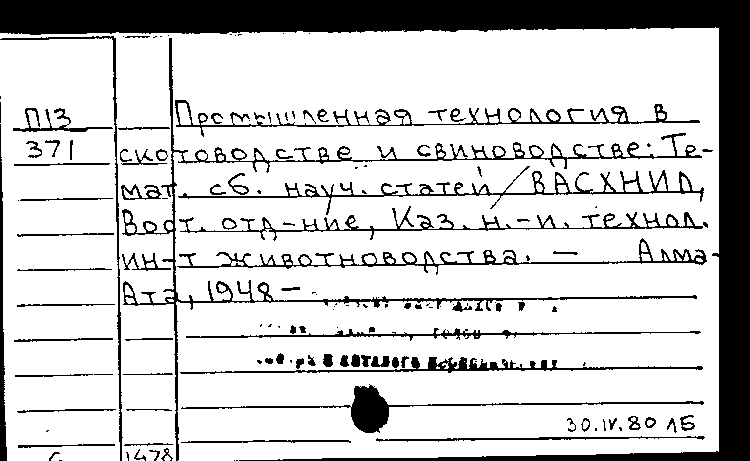 П13 Промышленная технология в
371 скотоводстве и свиноводстве: Те-
мат. сб. науч. статей / ВАСХНИЛ,
Вост. отд-ние, Каз. н.-и. технол.
ин-т животноводства. — Алма-
Ата, 1948 —
30.IV.80 АБ
1478